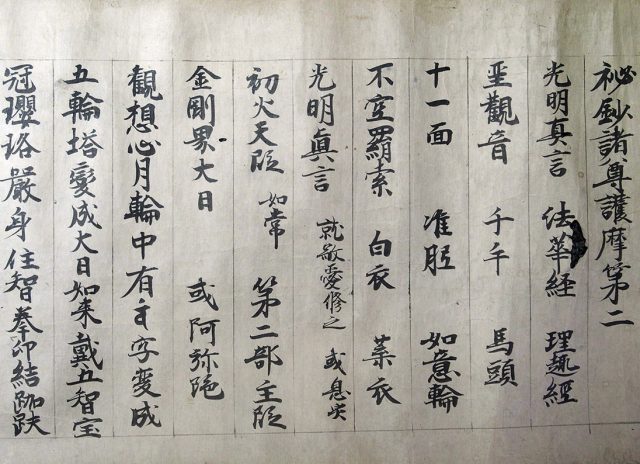 秘鈔諸尊護摩第二
光明真言 法華経 理趣経
聖観音 千手 馬頭
十一面 准胝 如意輪
不空羂索 白衣 葉衣
光明眞言 就敬愛修之 或息災
初火天段 如常 第二部主段
金剛界大日 或阿弥陀
觀想心月輪中有 字変成
五輪塔変成大日如来戴五智宝
冠瓔珞嚴身住智拳印結跏趺